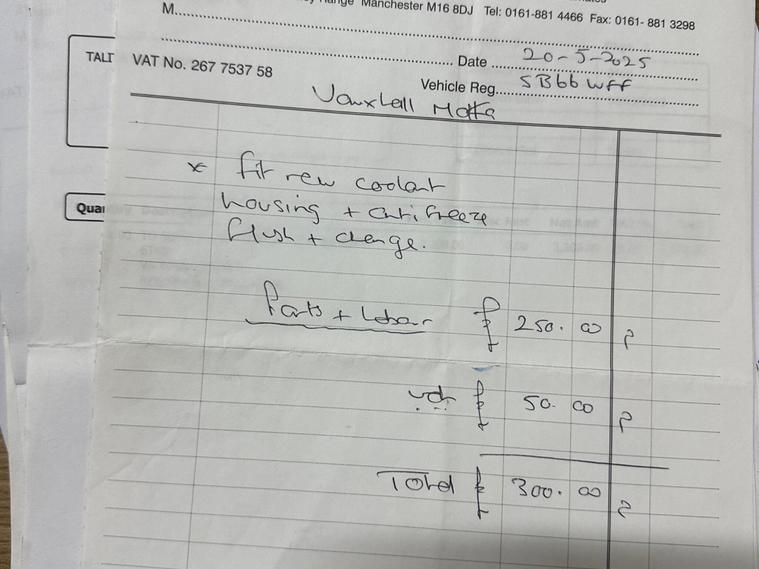 Range Manchester M16 8DJ Tel: 0161-881 4466 Fax: 0161- 881 3298
M
Date 20-5-2025
TALT VAT No. 267 7537 58
Vehicle Reg. SB66 WFF
Vauxhall Mokka
x fit new coolant
housing + antifreeze
flush + change.
Parts + Labour £ 250.00 p
vat £ 50.00 p
Total £ 300.00 p
Quan